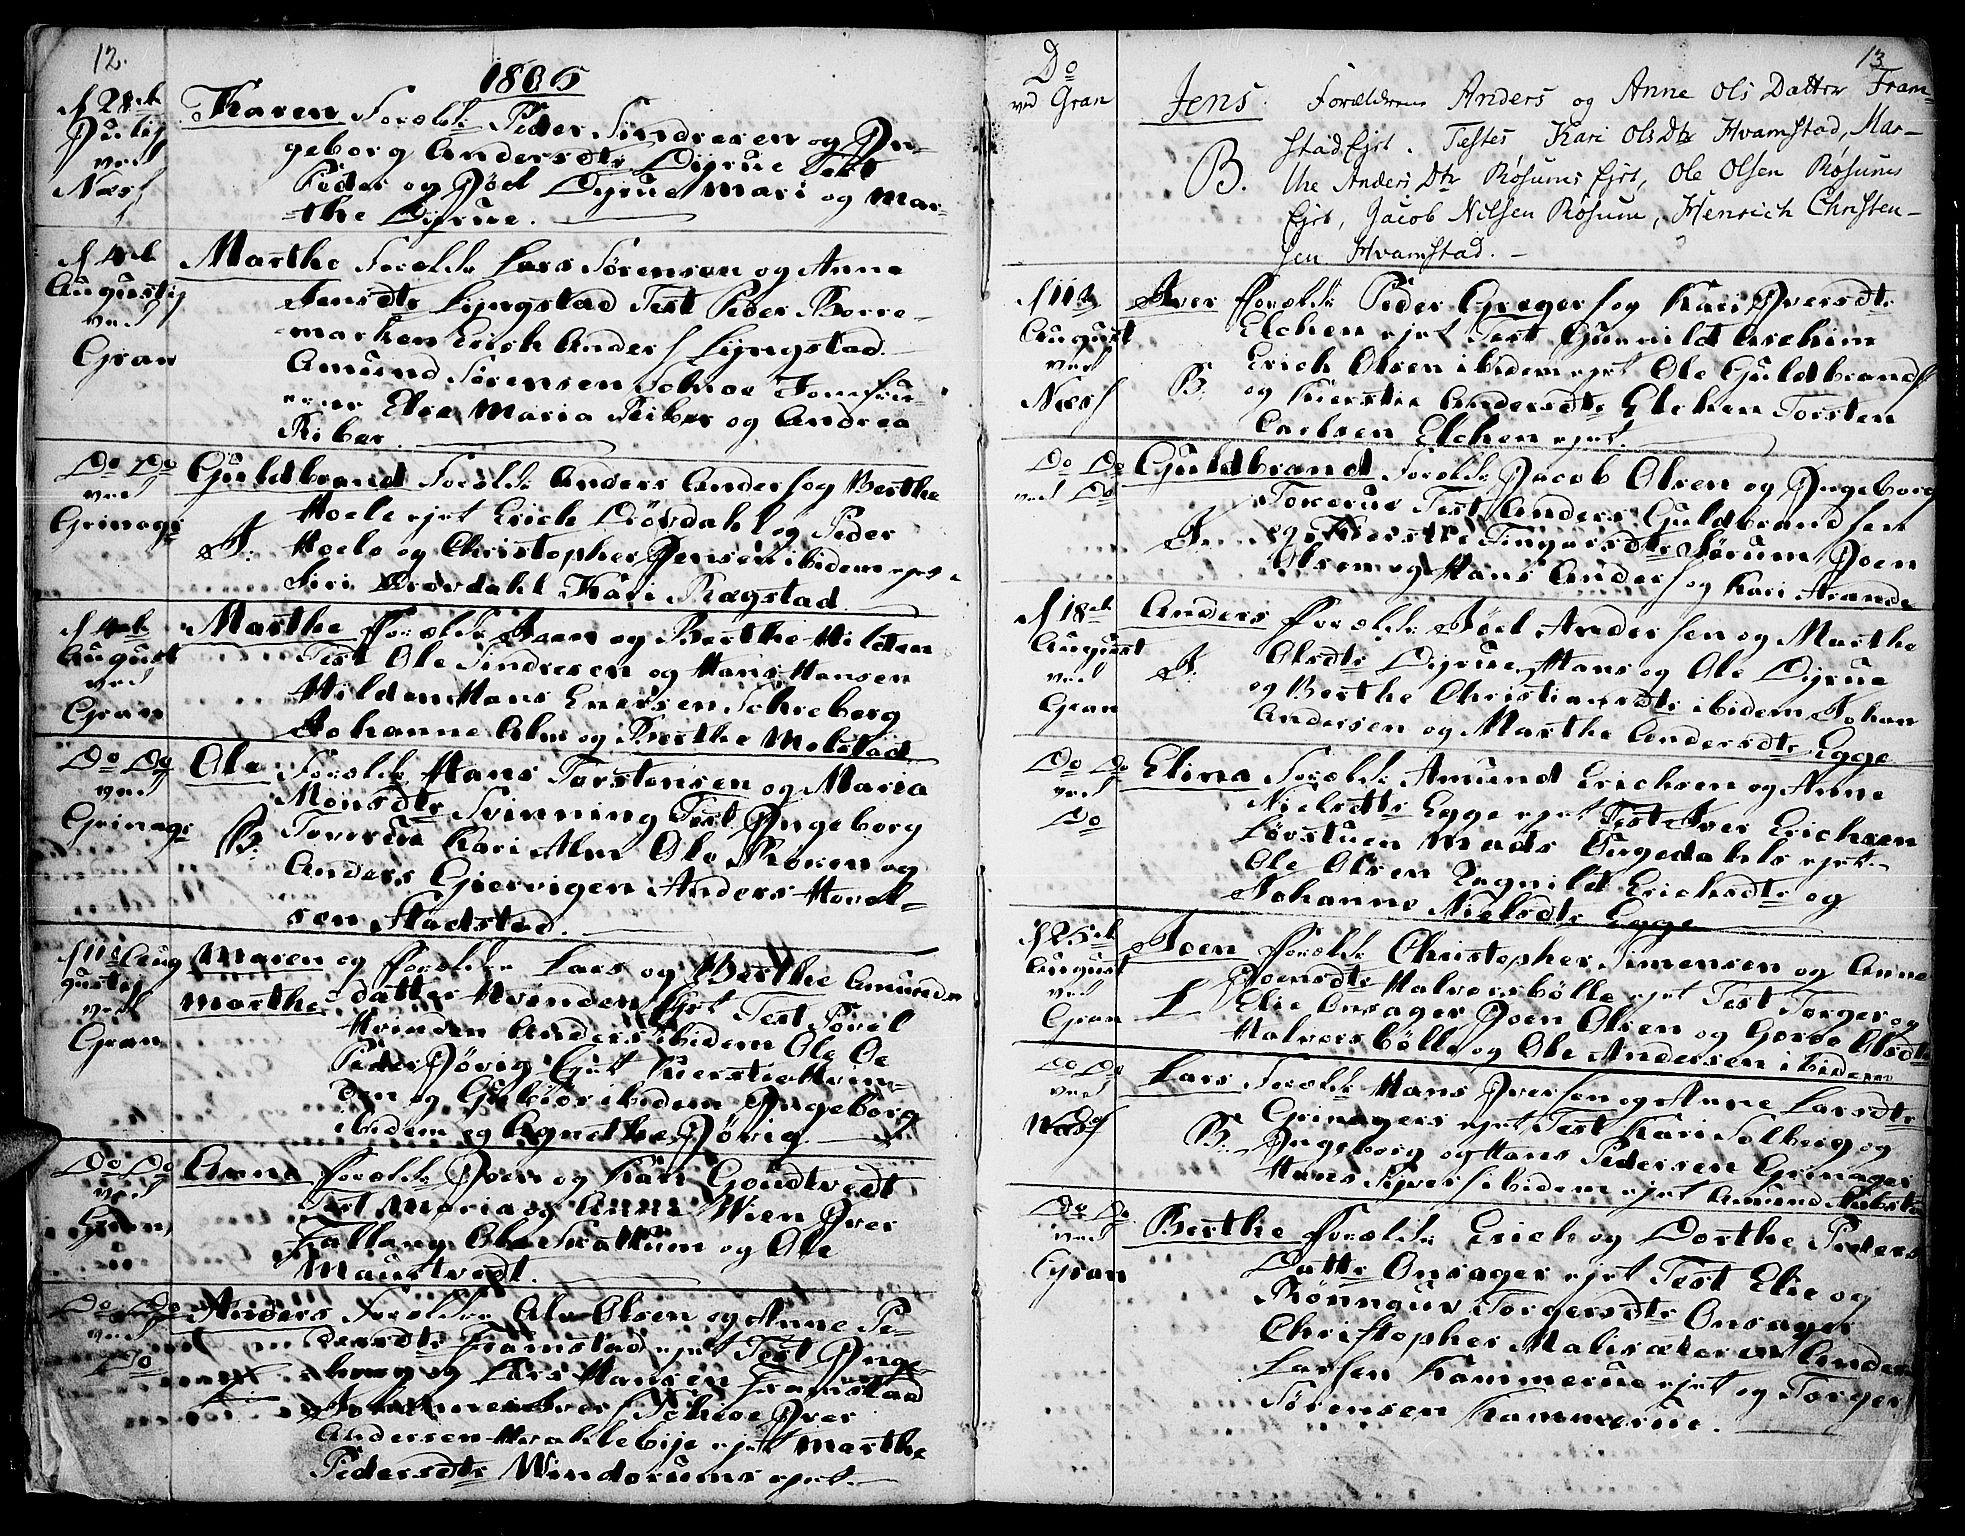 12.
1805
d 28de
Julij
ved
Næss
Karen Forældr Peder Sindresen og In-
geborg Andersdtr Dijrue Test
Peder og Jöel Dijrue Mari og Mar-
the Dijrue.
d 4de
Augustij
ved
Gran
Marthe Forældr Lars Sörensen og Anne
Jensdtr Lijngstad Test Peder Borre-
marken Erich Anders Lijngstad
Amund Sörensen Jomfru-
Else Maria Riber og Andrea
Riber.
Do Do
ved
Grinager
Guldbrand Forældr Anders Anders og Berthe
Hoele ejet Erich Dövdahl og Peder
Hoele og Christopher Jensen ibidem ejet
Siri Drövdahl Kari Rægstad
d 4de
August
ved
Gran
Marthe Forældr Iver og Berthe Hilden
Test Ole Sindresen og Hans Hansen
Hilden Hans Enersen Schreberg
Johanne Alm og Berthe Molstad
Do Do
ved
Grinager
Ole Forældr Hans Torstensen og Maria
Monsdtr Svinning Test Ingeborg
B. Toverud Kari Alm Ole Röken og
Anders Gjervigen Anders Hovel-
sen Stadstad.
d 11te Aug
gustij
ved
Gran
Maren og Forældr Lars og Berthe Amunds
Marthe datter Hvinden Ejet Test Povel
Hvinden Anders ibidem Ole Oe
Peder Jövig Ejet Kierstie Hvin-
den og Gubiör ibidem Ingeborg
ibidem og Agnethe Jövig
Do Do
ved
Gran
Anne Forældr Iver og Kari Goudtvedt
Test Maria og Anne Wien Iver
Fallang Ole Skattum og Ole
Maurtvedt.
Do Do
ved
Do
Anders Forældr Ole Olsen og Anne Pe-
dersdtr Framstad ejet Test Inge-
borg og Lars Hansen Framstad
Johanne Iver Schiöe Iver
Andersen Hvaklebije ejet Marthe
Pedersdtr Windorums ejet
13
Do
ved Gran
Jens. Forældrene Anders og Anne Ols Datter Fram-
stadEjet. Testes Kari OlsDtr Hvamstad, Mar-
B. the Anders Dtr Røsums Ejet, Ole Olsen Røsums
Ejet, Jacob Nilsen Røsum, Henrich Christen-
sen Hvamstad.
d 11te
August
ved
Næss
Iver Forældr Peder Gregers og Kari Iversdtr
Elchen ejet Test Gunild Aschim
B. Erich Olsen ibidem ejet Ole Guldbrands
og Kierstie Andersdtr Elchen Torsten
Carlsen Elchen ejet.
Do Do
ved Do
Guldbrand Forældr Jacob Olsen og Ingeborg
Tokerue Test Anders Guldbrandsen
og Kierstie Tingersdtr Sörum Joen
Olsen og Hans Anders og Kari Strande
d 18de
August
ved
Gran
Anders Forældr Jöel Andersen og Marthe
Olsdtr Dijrue Hans og Ole Dijrue
og Berthe Christiansdtr ibidem Johan
Andersen og Marthe Andersdtr Egge
Do Do
ved
Do
Elina Forældr Amund Erichsen og Anne
Nielsdtr Egge ejet Test Iver Erichsen
Lövstuen Mads Ougedahls ejet
Ole Olsen Ragnild Erichsdtr og
Johanne Nielsdtr Egge
d 25de
August
ved
Gran
Joen Forældr Christopher Simensen og Anne
Joensdtr Halvorsbölle ejet Test Torger og
Elie Onsager Joen Olsen og Goroe Olsdtr
Halvorsbölle og Ole Andersen ibidem
Do Do
ved
Do
Lars Forældr Hans Iversen og Anne Larsdtr
Grinagers ejet Test Kari Solberg og
B. Ingeborg og Hans Pedersen Grinager
Hans Sijvers ibidem ejet Amund
Do Do
ved
Gran
Berthe Forældr Erich og Dorthe Peders
Dattr Onsager ejet Test Elie og
Rönnaug Torgersdtr Onsager
Christopher Malisæteren Anders
Larsen Kammerue ejet og Torger
Sörensen Kammerue.